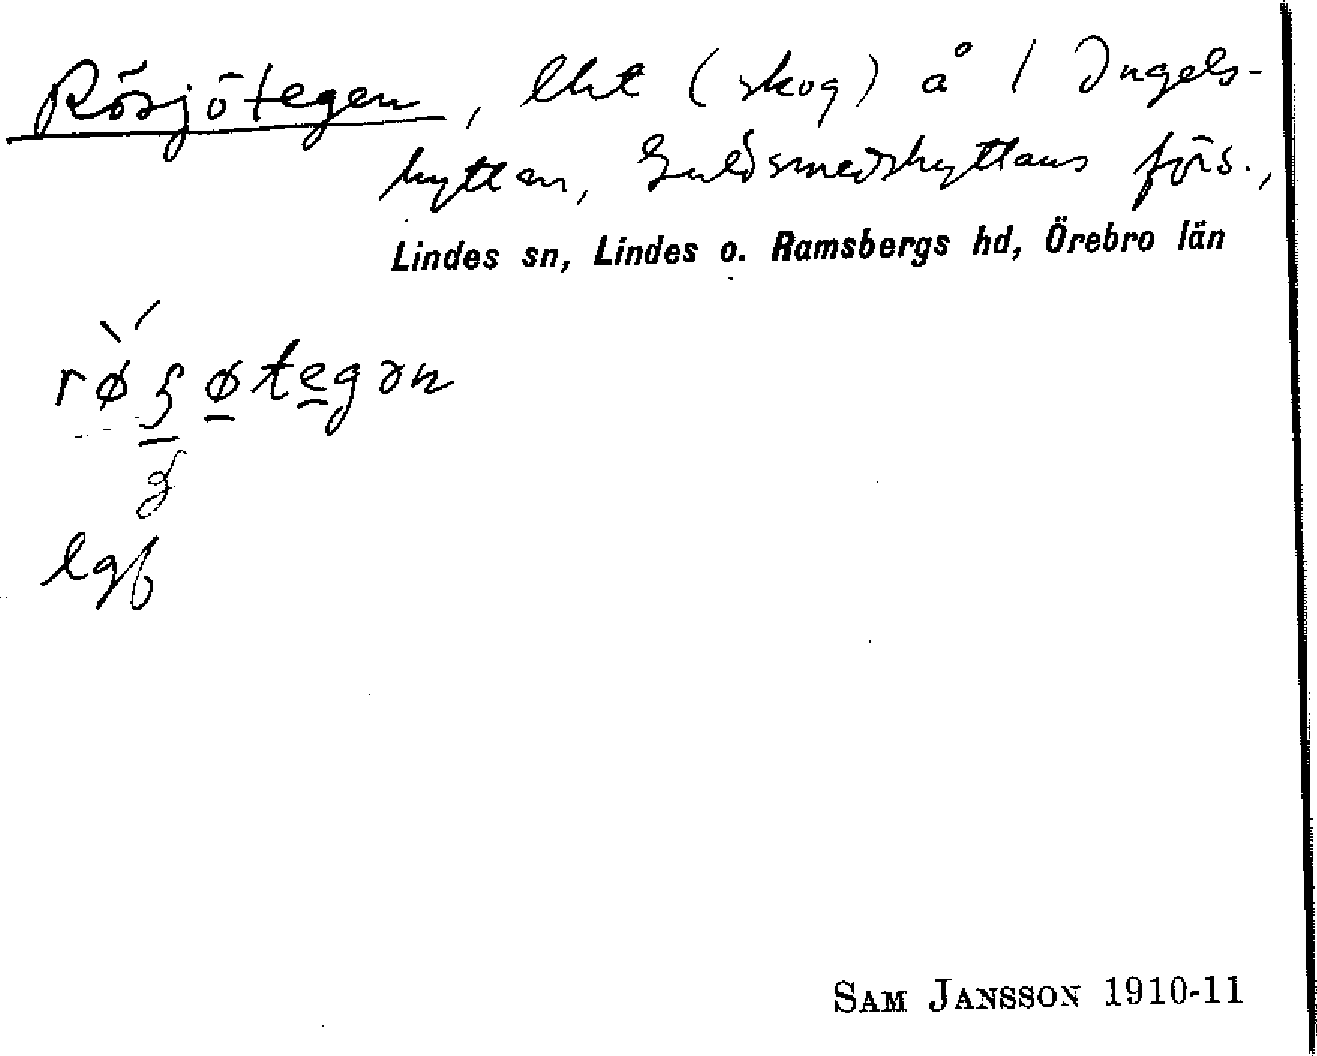 Rösjötegen, lht (skog) å 1 Ingels-
hyttan, Guldsmedshyttans förs.,
Lindes sn, Lindes o. Ramsbergs hd, Örebro län
SAM JANSSON 1910-11